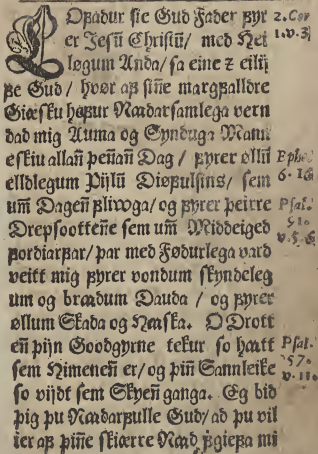 LOfadur sie Gud Fader fyr
er Jesū Christū/ med Hei
løgum Anda/ sa eine z eilij
fe Gud/ hvør af sine margfalldre
Giæsku hafur Nadarsamlega vern
dad mig Auma og Synduga Mann
eskiu allañ peñañ Dag/ fyrer øllū
elldlegum Pijlū Diøfulsins/ sem
um Dageñ fliwga/ og fyrer peirre
Drepsoottene sem um Middeiged
fordiarfar/ par med Fødurlega vard
veitt mig fyrer vondum skyndeleg
um og brædum Dauda / og fyrer
øllum Skada og Hæska. O Drott
eñ pijn Goodgyrne tekur so hæt
sem Himeneñ er/ og piñ Sannleike
so vijdt sem Skyeñ ganga. Eg bid
pig pu Nadarfulle Gud/ ad pu vil
ier af piñe skiærre Nad fgiefa mi
2. Cor
1. v. 3
Ephe.
6. 16
Psal.
91.
v. 5. 6
Psal.
57.
v. 11.